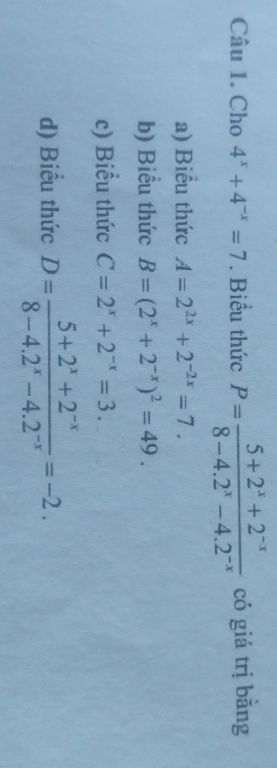 Câu 1. Cho 4^x + 4^{-x} = 7. Biểu thức P = \frac{5 + 2^x + 2^{-x}}{8 - 4.2^x - 4.2^{-x}} có giá trị bằng
a) Biểu thức A = 2^{2x} + 2^{-2x} = 7.
b) Biểu thức B = (2^x + 2^{-x})^2 = 49.
c) Biểu thức C = 2^x + 2^{-x} = 3.
d) Biểu thức D = \frac{5 + 2^x + 2^{-x}}{8 - 4.2^x - 4.2^{-x}} = -2.